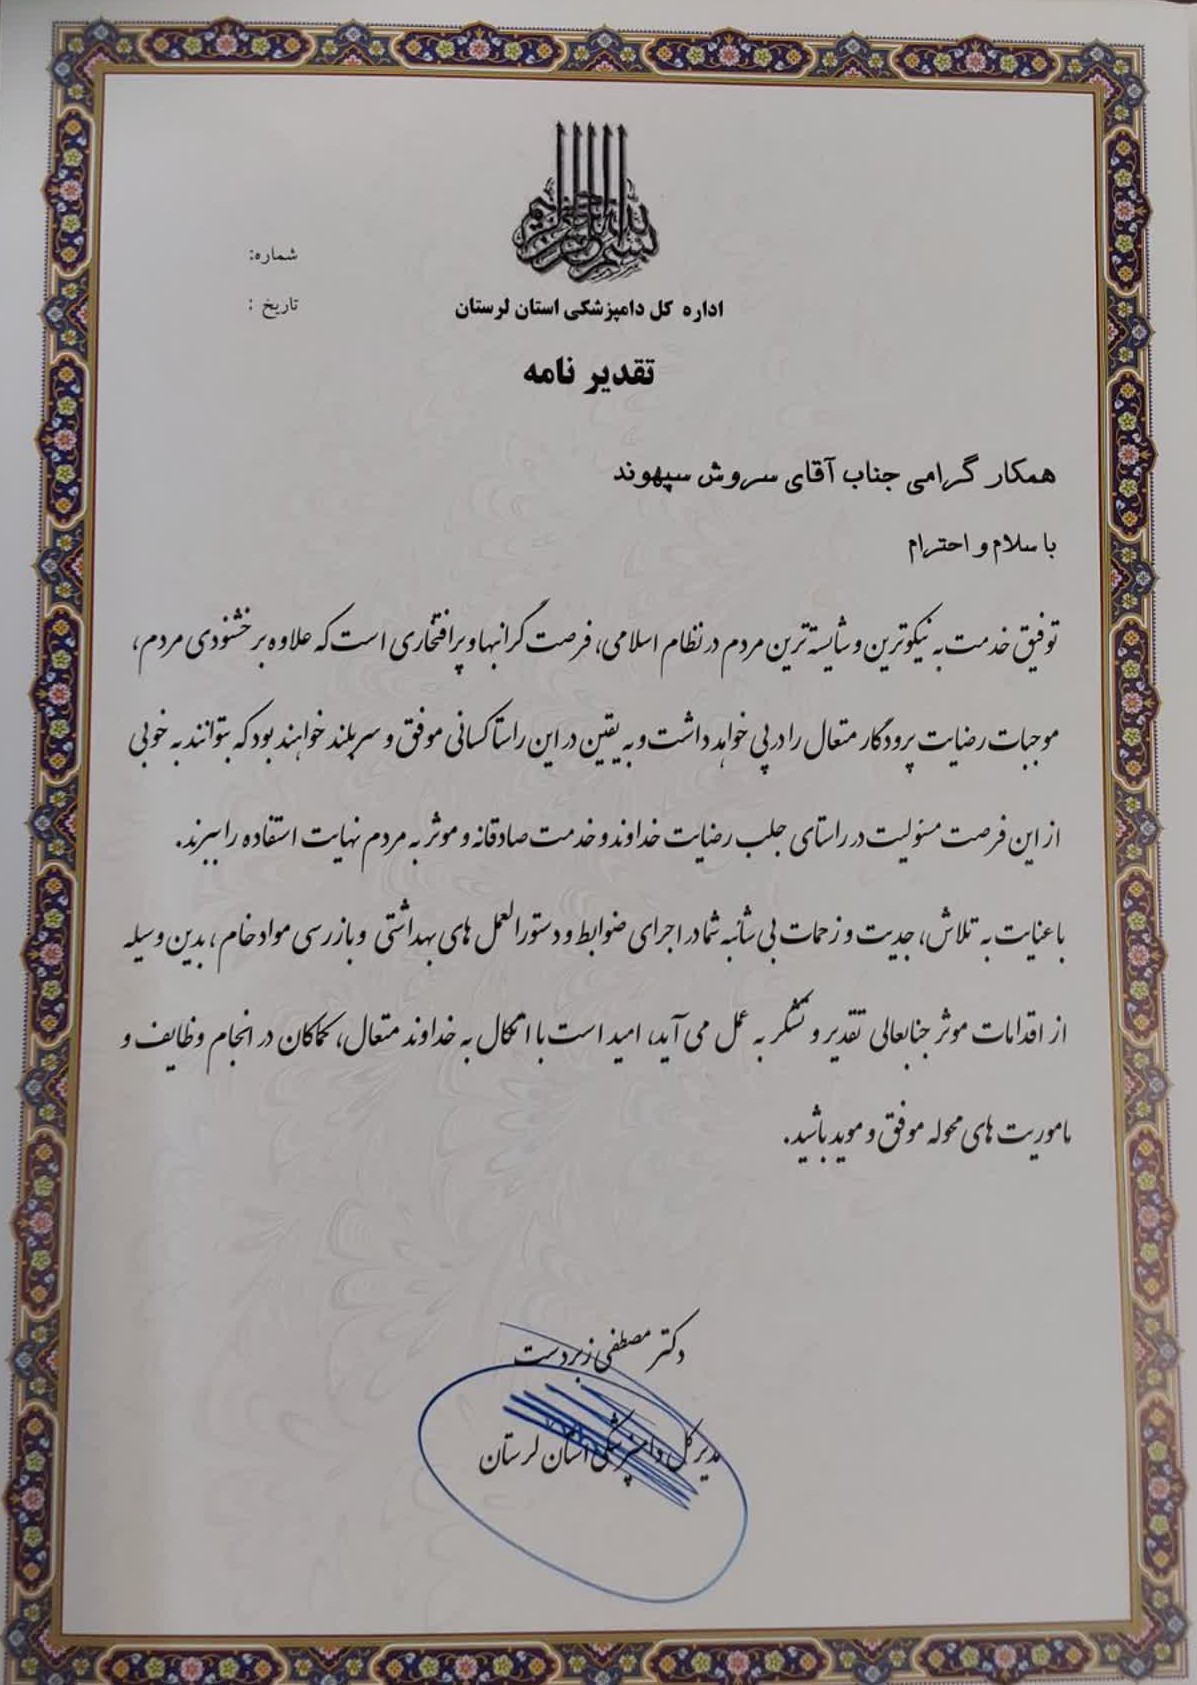 بسم الله الرحمن الرحیم
شماره:
تاریخ :
اداره کل دامپزشکی استان لرستان
تقدیر نامه
همکار گرامی جناب آقای سروش سپهوند
با سلام و احترام
توفیق خدمت به نیکوترین و شایسته ترین مردم در نظام اسلامی، فرصت گرانبها و پر افتخاری است که علاوه بر خشنودی مردم،
موجبات رضایت پرودگار متعال را در پی خواهد داشت و به یقین در این راستا کسانی موفق و سربلند خواهند بود که بتوانند به خوبی
از این فرصت مسئولیت در راستای جلب رضایت خداوند و خدمت صادقانه و موثر به مردم نهایت استفاده را ببرند.
با عنایت به تلاش، جدیت و زحمات بی شائبه شما در اجرای ضوابط و دستورالعمل های بهداشتی و بازرسی مواد خام ، بدین وسیله
از اقدامات موثر جنابعالی تقدیر و تشکر به عمل می آید، امید است با اتکال به خداوند متعال، کماکان در انجام وظایف و
ماموریت های محوله موفق و موید باشید.
دکتر مصطفی زبردست
مدیر کل دامپزشکی استان لرستان